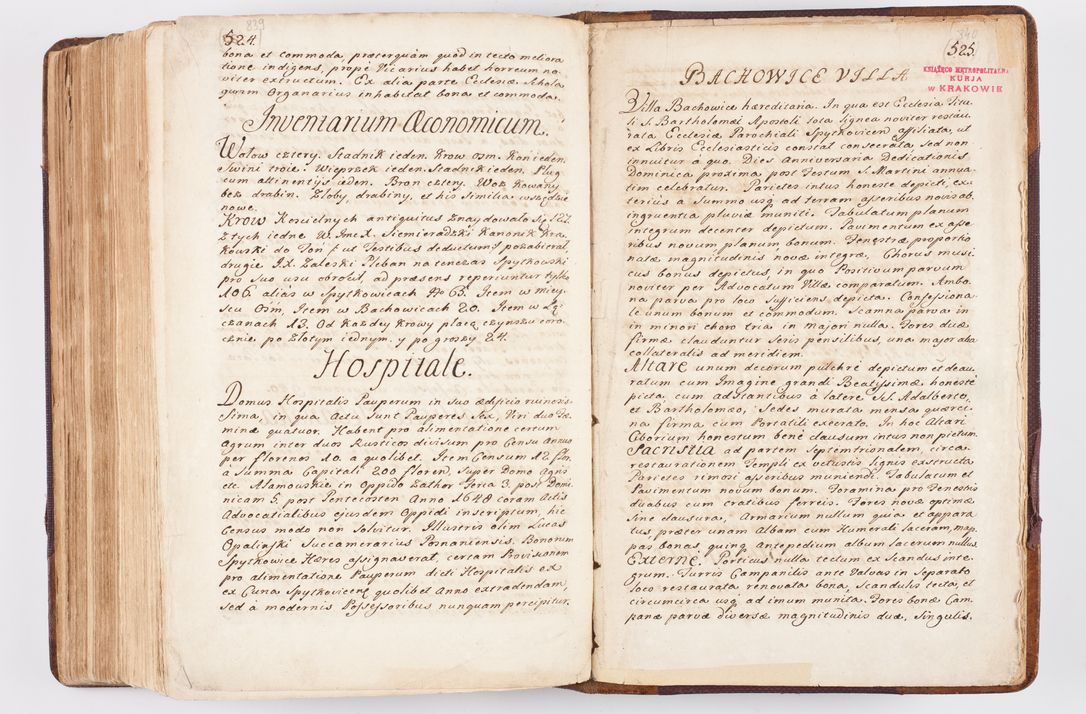 829
524.
bona et commoda, præterquàm quod in tecto meliora
tione indigens, propè Vicarius habet horreum no=
viter extructum. Ex alia parte Ecclesiæ Schola
quam Organarius inhabitat bona et commoda.
Inventarium Œconomicum.
Wołow cztery. Stadnik ieden. Krow osm. Koń ieden.
Swini troie. Wieprzek ieden. Stadnik ieden. Pług
cum attinentijs ieden. Bron cztery. Woz Kowany
bez drabin. Złoby, drabiny, et his similia wszędzie
nowe.
Krow Koscielnych antiquitus znaydowało się 122.
z tych iedne W. Imc X. Siemieradzki Kanonik Kra=
kowski do Toń ut Testibus deductum pozabierał
drugie J.X. Zaleski Pleban na tenczas Spytkowski
pro suo usu obrocił, ad præsens reperiuntur tylko
106. aliàs w Spytkowicach No 65. Item w miey=
scu Ośm, Item w Bachowicach 20. Item w Łą=
czanach 13. Od Kazdey Krowy płacą czynszu coro=
cznie po Złotym iednym, y po groszy 24.
Hospitale.
Domus Hospitalis Pauperum in suo ædificio ruinosis=
sima, in qua Actu sunt Pauperes sex, Viri duo Fæ=
minæ quatuor. Habent pro alimentatione certum
Agrum inter duos Rusticos divisum pro Censu Annuo
per florenos 10. a quolibet. Item Censum 12. flor.
à Summa Capitali 200 floren. super Domo Agris
etc. Adamowskie in Oppido Zathor Feria 3. post Domi=
nicam 5. post Pentecosten Anno 1648 coram Actis
Advocatialibus ejusdem Oppidi inscriptum, hic
Census modo non solvitur. Illustris olim Lucas
Opaliński Succamerarius Posnaniensis. Bonorum
Spytkowice Hæres assignaverat, certam Provisionem
pro alimentatione Pauperum dicti Hospitalis ex
ex Curia Spytkovicen. quolibet Anno extradendam,
sed à modernis Possessoribus nunquam percipitur.
525.
KSIĄŻĘCO METROPOLITALNA
KURJA
w KRAKOWIE
BACHOWICE VILLA
Villa Bachowice hæreditaria. In qua est Ecclesia Titu
li S. Bartholomæi Apostoli tota lignea noviter restau=
rata Ecclesiæ Parochiali Spytkovicen. affiliata, ut
ex Libris Ecclesiasticis constat consecrata sed non
innuitur à quo. Dies Anniversaria Dedicationis
Dominica proxima post Festum S. Martini annua=
tim celebratur. Parietes intus honeste depicti, ex=
terius à Summo usq. ad terram asseribus novis ob
ingruentia pluviæ muniti. Tabulatum planum
integrum decenter depictum. Pavimentum ex asse
ribus novum planum bonum. Fenestræ proportio
natæ magnitudinis novæ integræ, Chorus musi=
cus bonus depictus, in quo Positivum parvum
noviter per Advocatum Villæ comparatum. Ambo=
na parva pro loco sufficiens depicta. Confessiona
le unum bonum et commodum. Scamna parva in
in minori choro tria in majori nulla. Fores duæ
firmæ clauduntur seris pensilibus, una major aba
collateralis ad meridiem.
Altare unum decorum pulchrè depictum et deau=
ratum cum Imagine grandi Beatissimæ honestè
picta, cum adstantibus à latere S.S. Adalberto,
et Bartholomæo, Sedes murata mensa quærci=
na firma cum Portatili exterato. In hoc Altari
Ciborium honestum benè clausum intus non pictum.
Sacristia ad partem Septemtrionalem, circa
restaurationem Templi ex vetustis lignis exstructa
Parietes rimosi asseribus muniendi. Tabulatum et
Pavimentum novum bonum. Foramina pro Fenestris
duabus cum cratibus ferreis. Fores novæ optimæ,
sine clausura, Armarium nullum quia et appara
tus, præter unam Albam cum Humerali laceram, map=
pas bonas, quinq. Antepedium album lacerum nullus.
Externe. Porticus nulla tectum ex Scandis inte=
grum. Turris Campanilis ante Valvas in separato
loco restaurata renovata bona, Scandulis tecta, et
circumcirca usq. ad imum munita. Fores bonæ Cam=
panæ parvæ diversæ magnitudinis duæ, singulis.